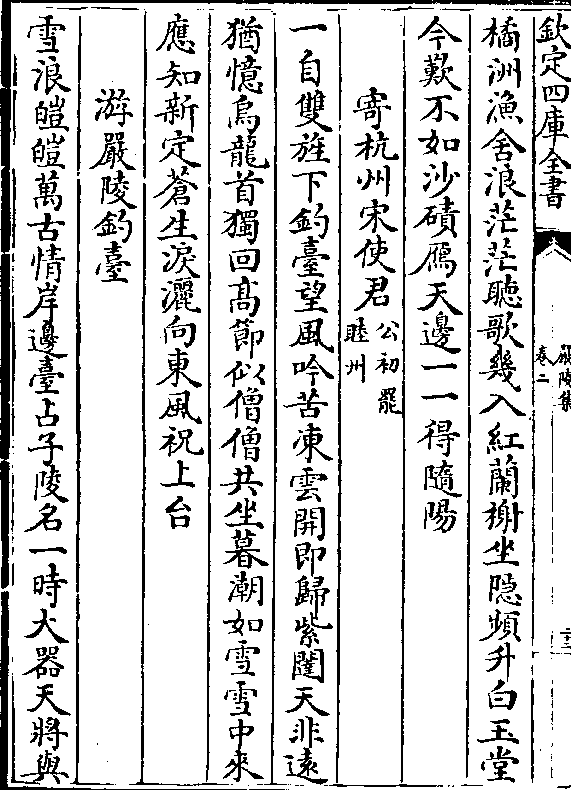 欽定四庫全書
嚴陵集
卷二
十三
橘洲漁舍浪茫茫聽歌幾入紅蘭榭坐隠頻升白玉堂
今歎不如沙磧鴈天邊一一得隨陽
寄杭州宋使君公初罷
睦州
一自雙旌下釣臺望風吟苦凍雲開即歸紫闥天非遠
猶憶烏龍首獨回髙節似僧僧共坐暮潮如雪雪中來
應知新定蒼生淚灑向東風祝上台
游嚴陵釣臺
雪浪皚皚萬古情岸邊臺占子陵名一時大器天將與